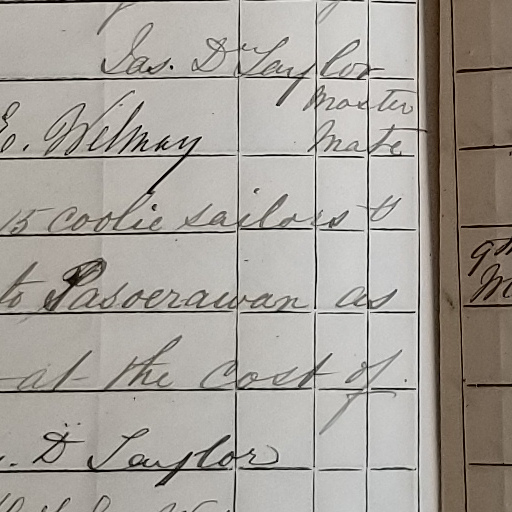 Jas. D Taylor
Master
E. Wilmay Mate
15 coolie sailors &
to Pasoerawan as
at the cost of
. D Taylor